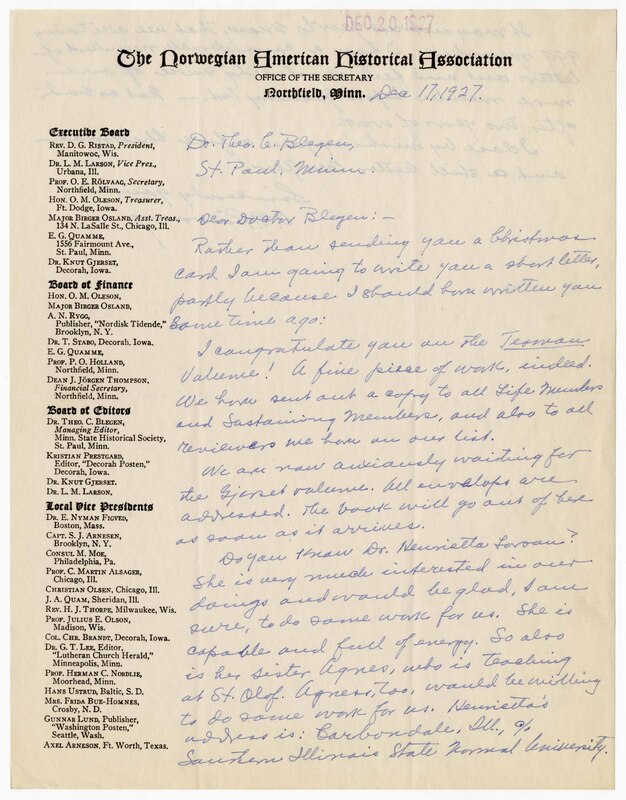 DEC 20 1927
The Norwegian American Historical Association
OFFICE OF THE SECRETARY
Northfield, Minn. Dec 17, 1927.
Executive Board
REV. D. G. RISTAD, President,
Manitowoc, Wis.
DR. L. M. LARSON, Vice Pres.,
Urbana, Ill.
PROF. O. E. RÖLVAAG, Secretary,
Northfield, Minn.
HON. O. M. OLESON, Treasurer,
Ft. Dodge, Iowa.
MAJOR BIRGER OSLAND, Asst. Treas.,
134 N. LaSalle St., Chicago, Ill.
E. G. QUAMME,
1556 Fairmount Ave.,
St. Paul, Minn.
DR. KNUT GJERSET,
Decorah, Iowa.
Board of Finance
HON. O. M. OLESON,
MAJOR BIRGER OSLAND,
A. N. RYGG,
Publisher, "Nordisk Tidende,"
Brooklyn, N. Y.
DR. T. STABO, Decorah, Iowa.
E. G. QUAMME,
PROF. P. O. HOLLAND,
Northfield, Minn.
DEAN J. JÖRGEN THOMPSON,
Financial Secretary,
Northfield, Minn.
Board of Editors
DR. THEO. C. BLEGEN,
Managing Editor,
Minn. State Historical Society,
St. Paul, Minn.
KRISTIAN PRESTGARD,
Editor, "Decorah Posten,"
Decorah, Iowa.
DR. KNUT GJERSET.
DR. L. M. LARSON.
Local Vice Presidents
DR. E. NYMAN FIGVED,
Boston, Mass.
CAPT. S. J. ARNESEN,
Brooklyn, N. Y.
CONSUL M. MOE,
Philadelphia, Pa.
PROF. C. MARTIN ALSAGER,
Chicago, Ill.
CHRISTIAN OLSEN, Chicago, Ill.
J. A. QUAM, Sheridan, Ill.
REV. H. J. THORPE, Milwaukee, Wis.
PROF. JULIUS E. OLSON,
Madison, Wis.
COL. CHR. BRANDT, Decorah, Iowa.
DR. G. T. LEE, Editor,
"Lutheran Church Herald,"
Minneapolis, Minn.
PROF. HERMAN C. NORDLIE,
Moorhead, Minn.
HANS USTRUD, Baltic, S. D.
MRS. FRIDA BUE-HOMNES,
Crosby, N. D.
GUNNAR LUND, Publisher,
"Washington Posten,"
Seattle, Wash.
AXEL ARNESON, Ft. Worth, Texas.
Dr. Theo. C. Blegen,
St. Paul, Minn.
Dear Doctor Blegen: —
Rather than sending you a Christmas
card I am going to write you a short letter,
partly because I should have written you
some time ago:
I congratulate you on the Tesman
Volume! A fine piece of work, indeed.
We have sent out a copy to all Life Members
and Sustaining Members, and also to all
reviewers we have on our list.
We are now anxiously waiting for
the Gjerset volume. All envelops are
addressed. The book will go out of here
as soon as it arrives.
Do you know Dr. Henrietta Larson?
She is very much interested in our
doings and would be glad, I am
sure, to do some work for us. She is
capable and full of energy. So also
is her sister Agnes, who is teaching
at St. Olof. Agnes, too, would be willing
to do some work for us. Henrietta's
address is: Carbondale, Ill., c/o
Southern Illinois State Normal University.